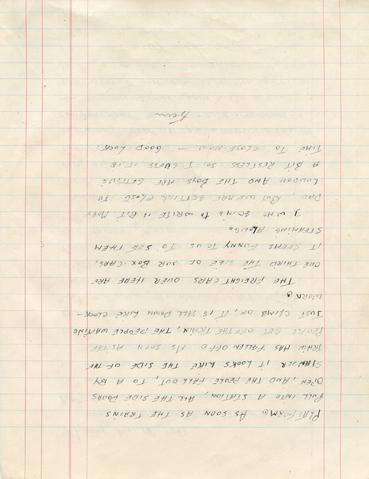 PLATFORM. AS SOON AS THE TRAINS
PULL INTO A STATION, ALL THE SIDE DOORS
OPEN, AND THE PEOPLE FALL OUT, TO A BY
STANDER IT LOOKS LIKE THE SIDE OF THE
TRAIN HAS FALLEN OFF. AS SOON AS THE
PEOPLE GET OFF THE TRAIN, THE PEOPLE WAITING
JUST CLIMB ON, IT IS ALL DOWN LIKE CLOCK-
WORK.
THE FREIGHT CARS OVER HERE ARE
ONE THIRD THE SIZE OF OUR BOX CARS,
IT SEEMS FUNNY TO US TO SEE THEM
STEAMING ALONG.
I WAS GOING TO WRITE A BIT MORE
DAD, BUT WE ARE GETTING CLOSE TO
LONDON AND THE BOYS ARE GETTING
A BIT RESTLESS SO, I GUESS IT IS
TIME TO CLOSE NOW — GOOD LUCK